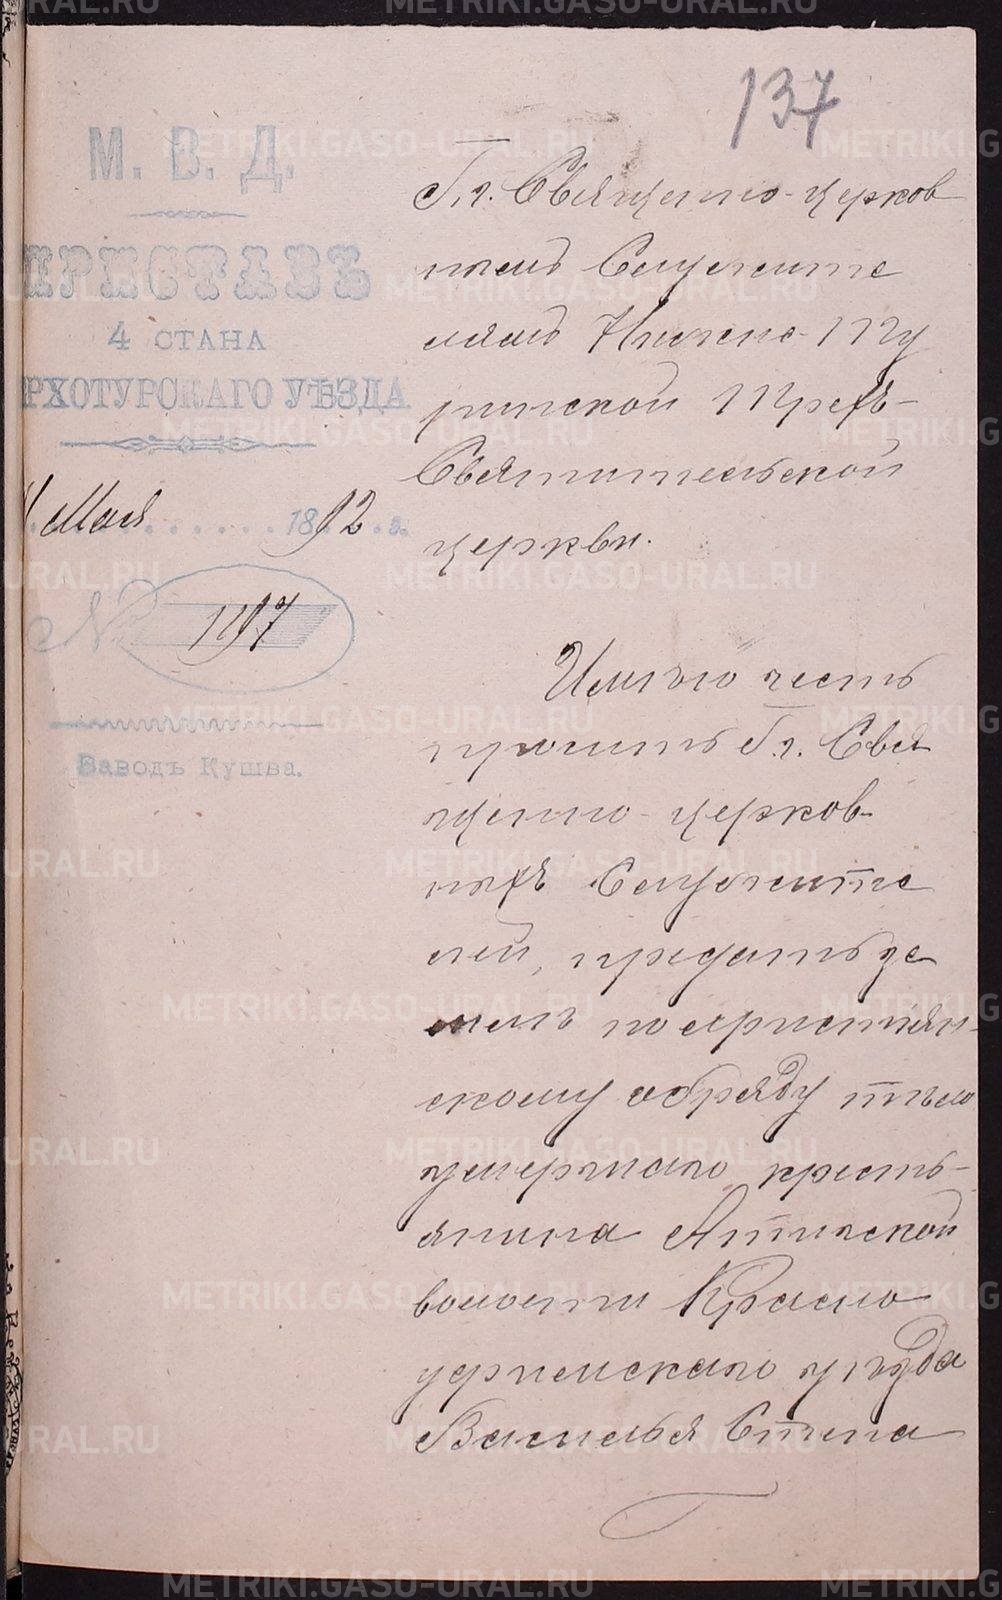 137
М. В. Д.
ПРИСТАВЪ
4 СТАНА
РХОТУРСКАГО УѢЗДА
Мая 1892 г.
№ 1897
Заводъ Кушва.
Г.г. Священно-церков
нымъ Служите
лямъ Нижне-Ту
ринской Трехъ-
Святительской
церкви.
Имѣю честь
просить Г.г. Свя
щенно-церков-
ныхъ Служите
лей, предать зе
млѣ по христіян-
скому обряду тѣло
умершаго кресть-
янина Ачитской
волости Красно
уфимскаго уѣзда
Василья Степа
METRIKI.GASO-URAL.RU